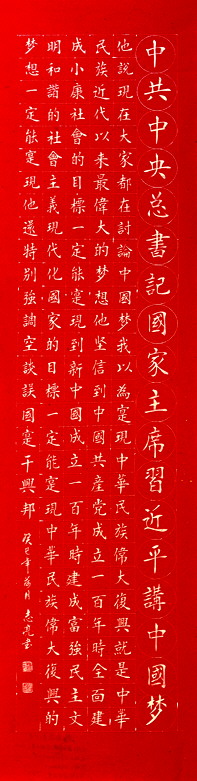 中共中央总書記國家主席習近平講中國梦
他說現在大家都在討論中國梦我以為寔現中華民族偉大復興就是中華
民族近代以来最偉大的梦想他坚信到中國共産党成立一百年時全面建
成小康社會的目標一定能寔現到新中國成立一百年時建成富強民主文
明和諧的社會主義現代化國家的目標一定能寔現中華民族偉大復興的
梦想一定能寔現他還特别強調空談誤國寔干興邦
癸巳年